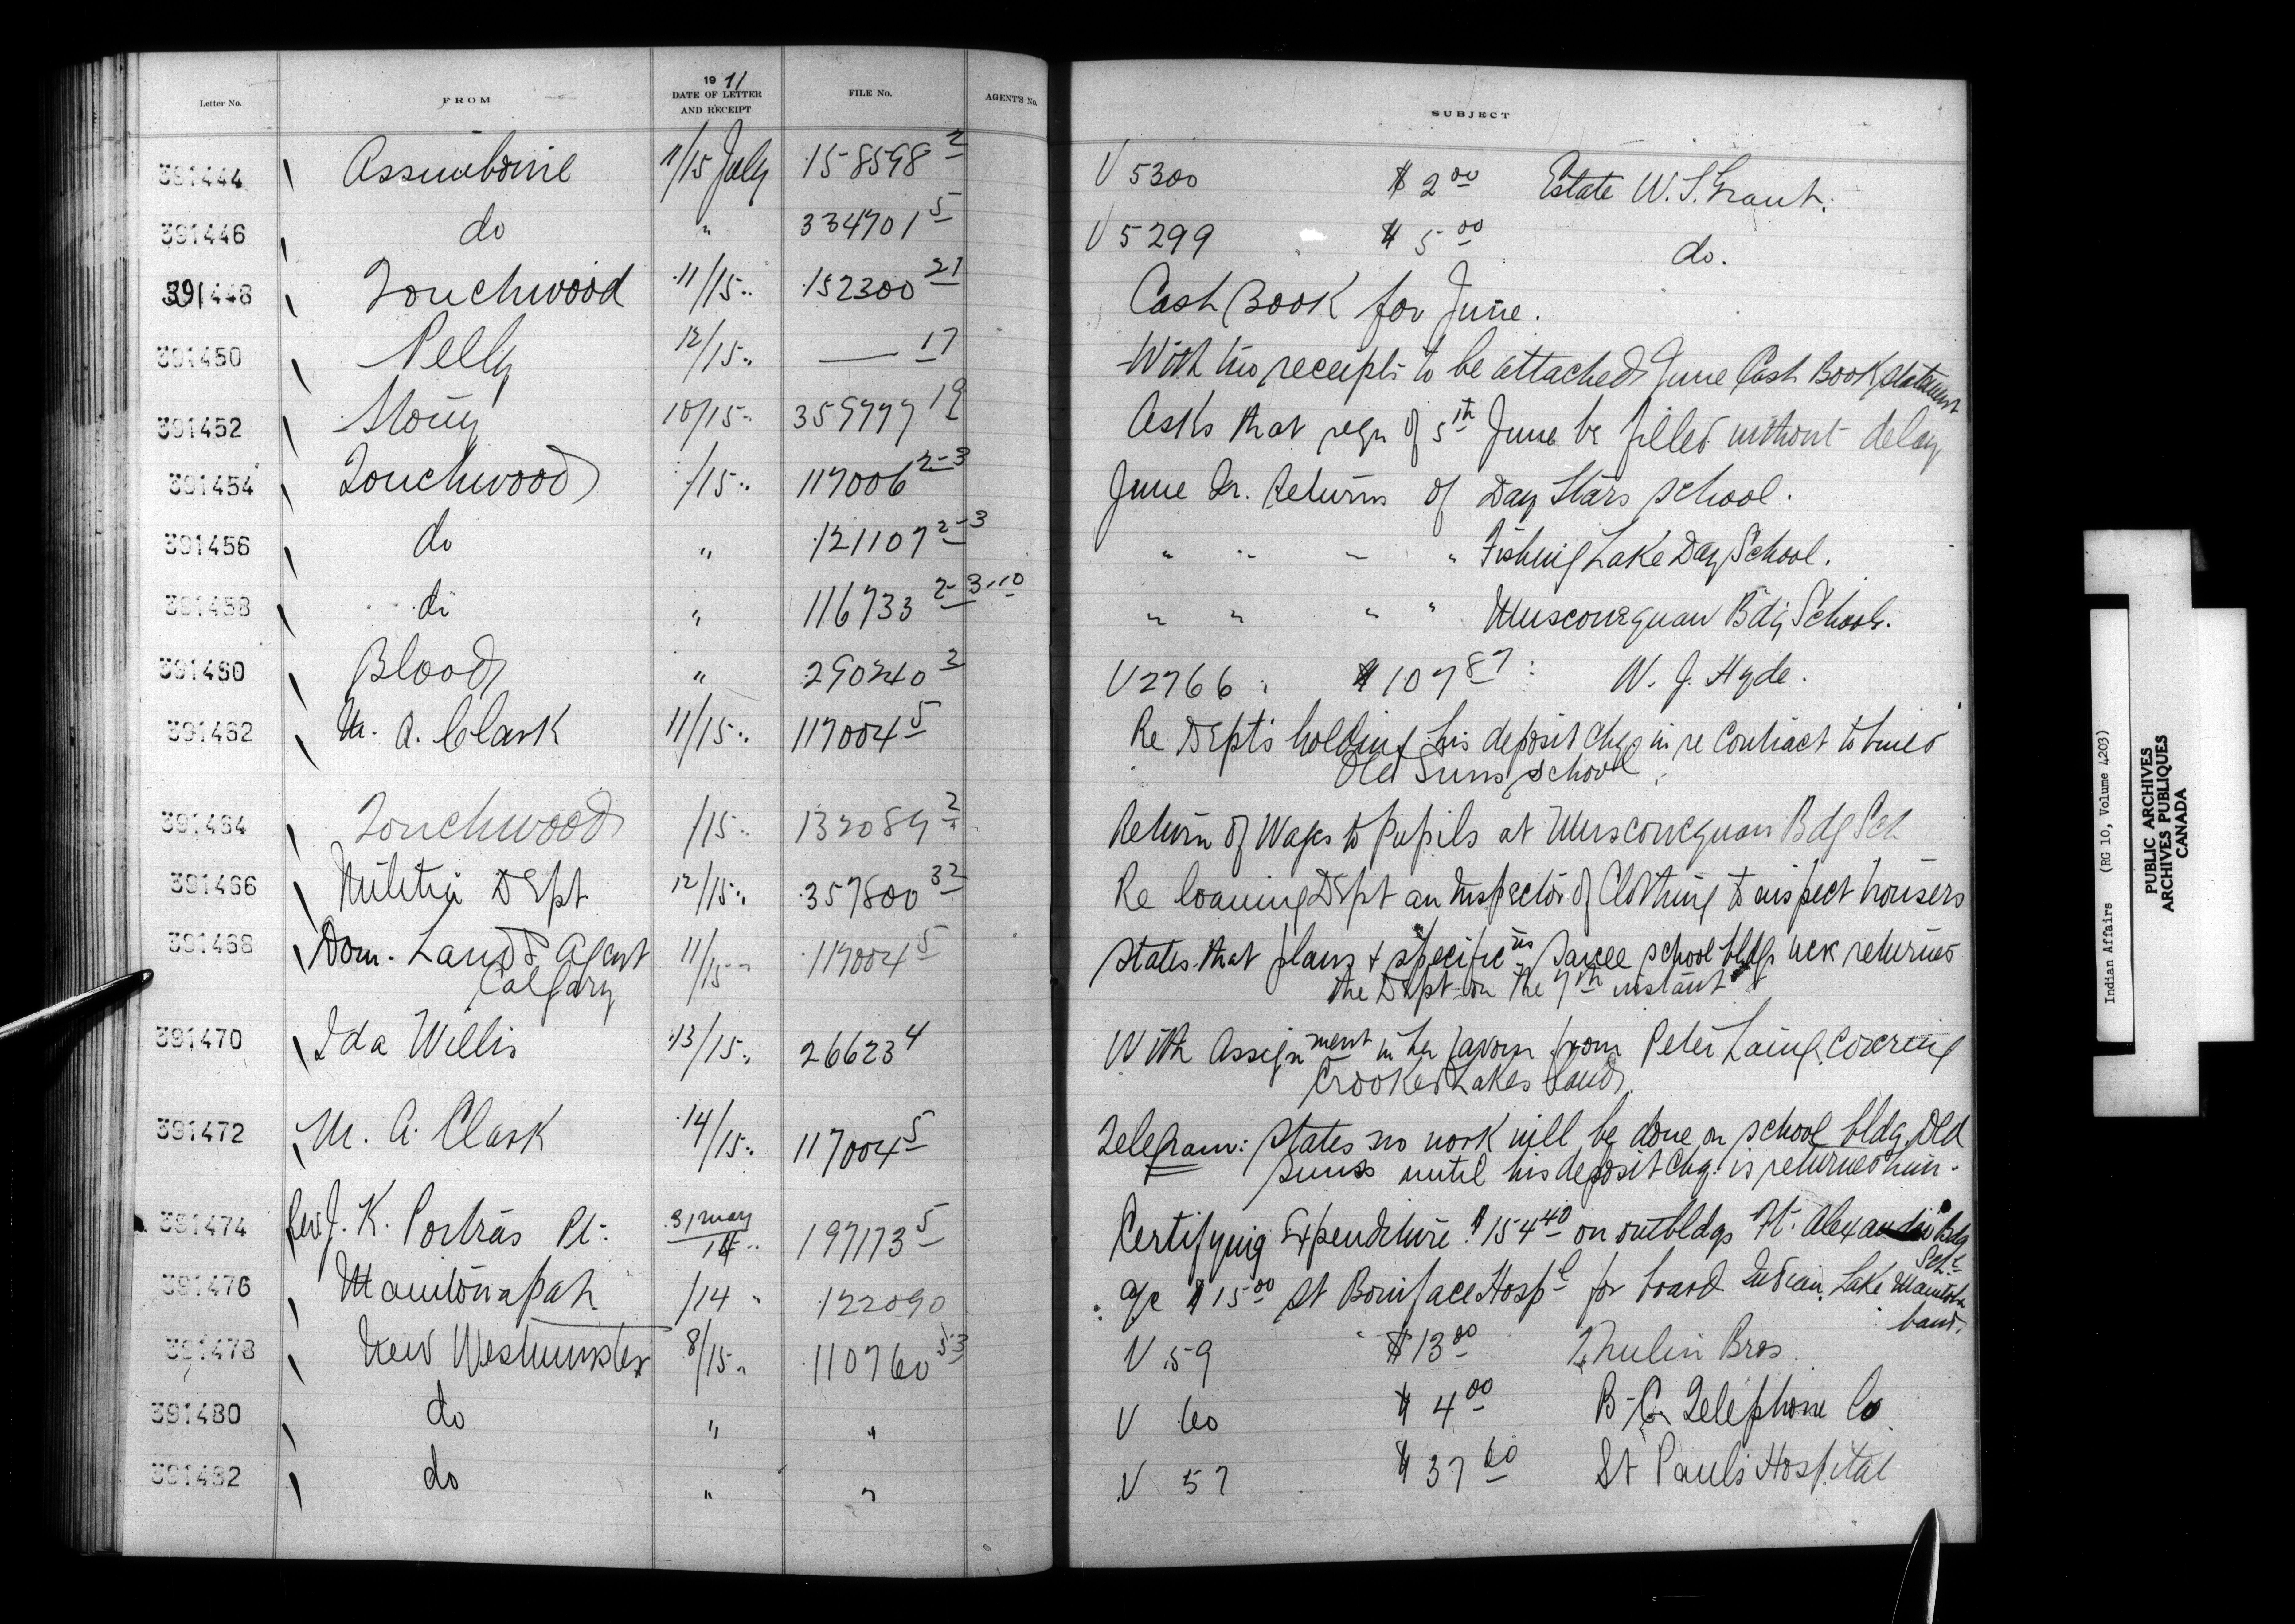 Letter No. FROM 1911 DATE OF LETTER AND RECEIPT FILE No. AGENT'S No. SUBJECT
391444 Assiniboine 11/15 July 158598 2 V 5300 $ 2 00 Estate W. S. Grant.
391446 do " 334701 5 V 5299 $ 5 00 do.
391448 Touchwood 11/15 " 152300 21 Cash Book for June.
391450 Pelly 12/15 " — 17 With two receipts to be attached June Cash Book statement
391452 Stony 10/15 " 359777 19 Asks that reqn of 5th June be filled without delay
391454 Touchwood /15 " 117006 2-3 June Qr. Returns of Day Stars school.
391456 do " 121107 2-3 " " " " Fishing Lake Day School.
391458 do " 116733 2-3-10 " " " " Muscowequan Bdg School.
391460 Blood " 290240 2 V 2766 $ 107 87 W. J. Hyde.
391462 M. A. Clark 11/15 " 117004 5 Re Dept's holding his deposit chq in re contract to build
Old Suns school.
391464 Touchwood /15 " 132089 2 Return of Wages to Pupils at Muscowequan Bdg Sch
391466 Militia Dept 12/15 " 357800 32 Re loaning Dept an Inspector of Clothing to inspect trousers
391468 Dom. Lands Agent 11/15 " 117004 5 States that plans & specific ns Sarcee school bldg were returned
Calgary the Dept on the 7th instant
391470 Ida Willis 13/15 " 26623 4 With Assignment in her favour from Peter Laing covering
Crooked Lakes Land.
391472 M. A. Clark 14/15 " 117004 5 Telegram: States no work will be done on school bldg Old
Suns until his deposit chq. is returned him.
391474 Rev J. K. Poitras Pt. 31 May/14 " 197173 5 Certifying Expenditure $ 154 40 on outbldgs Ft. Alexander Bdg
Schl
391476 Manitowapah /14 " 122090 a/c $ 15 00 St Boniface Hospl for board Indian Lake Manitoba
band.
391478 New Westminster 8/15 " 110760 53 V 59 $ 13 00 Thulin Bros.
391480 do " " V 60 $ 4 00 B.C. Telephone Co
391482 do " " V 57 $ 37 60 St Paul's Hospital
Indian Affairs (RG 10, Volume 4203)
PUBLIC ARCHIVES
ARCHIVES PUBLIQUES
CANADA